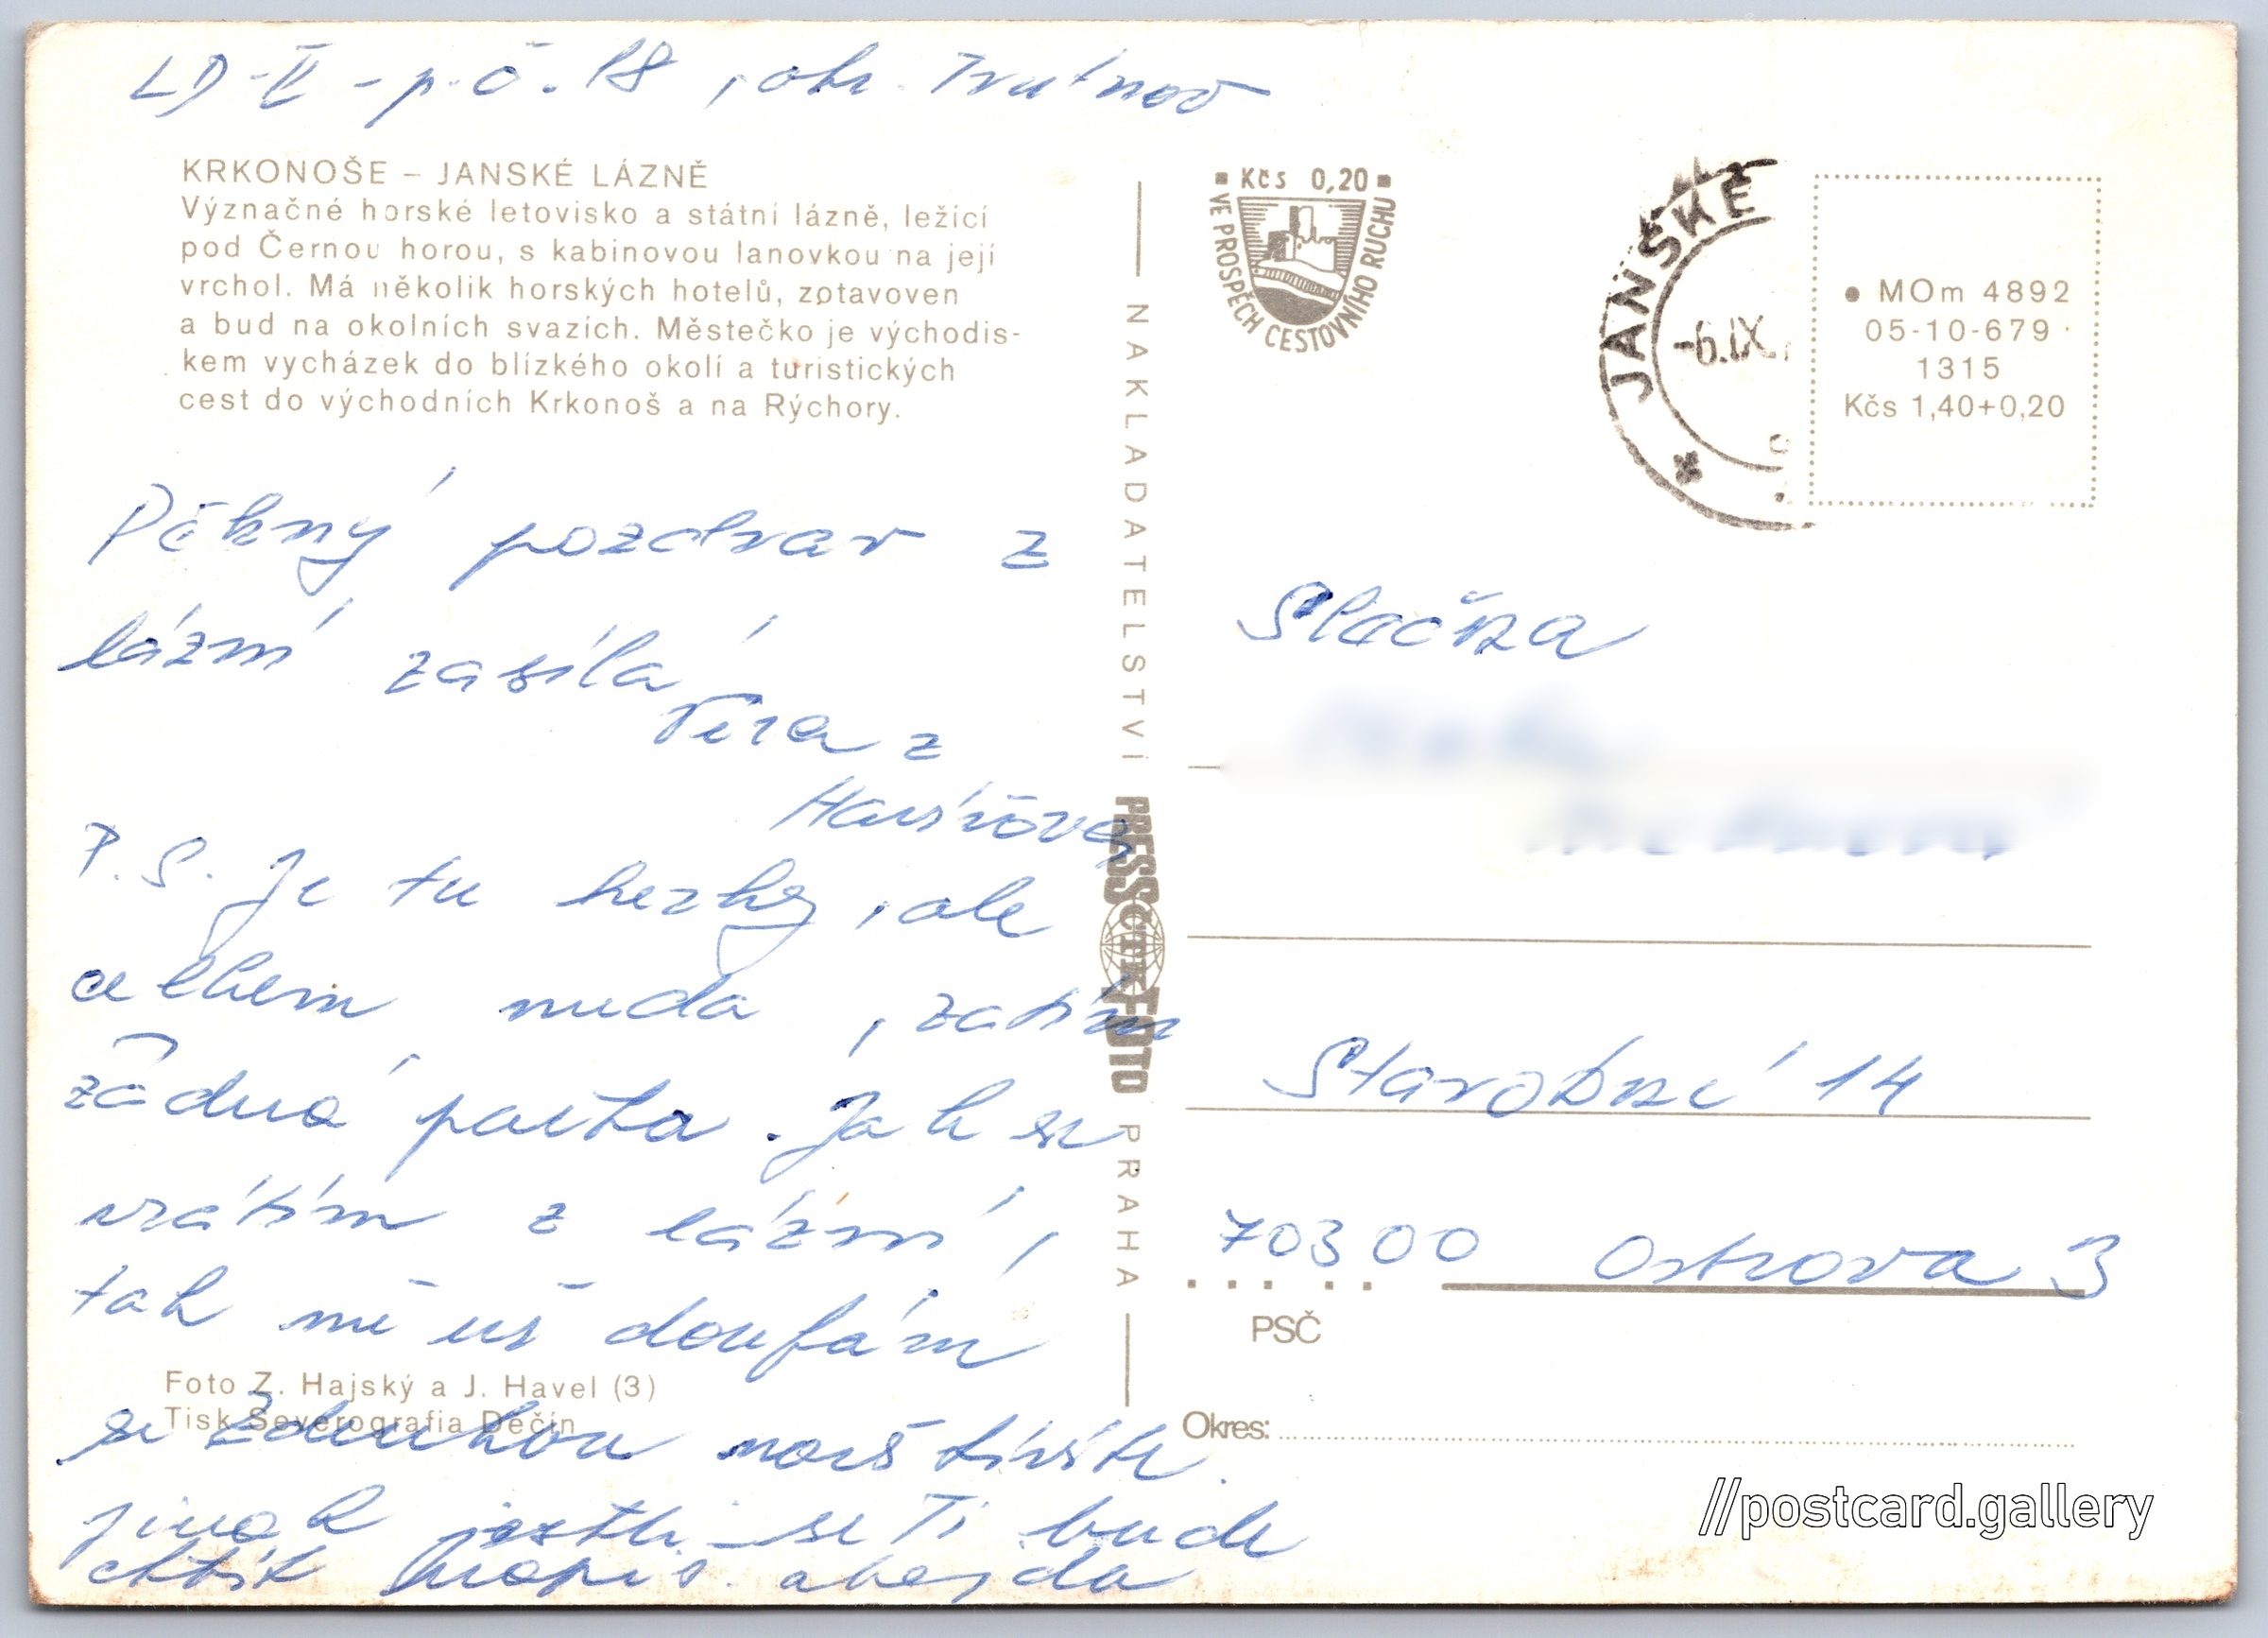 LD-II - p.č. 18, okr. Trutnov
KRKONOŠE – JANSKÉ LÁZNĚ
Význačné horské letovisko a státní lázně, ležící
pod Černou horou, s kabinovou lanovkou na její
vrchol. Má několik horských hotelů, zotavoven
a bud na okolních svazích. Městečko je východis-
kem vycházek do blízkého okolí a turistických
cest do východních Krkonoš a na Rýchory.
Pěkný pozdrav z
lázní zasílá
Věra z
P.S. Je tu hezky, ale
celkem nuda, zatím
žádná parta. Jak se
vrátím z lázní,
tak mě už doufám
se Zdeňkou navštívíte.
Jinak jestli se Ti bude
chtít napiš. ahoj
Foto Z. Hajský a J. Havel (3)
Tisk Severografia Děčín
NAKLADATELSTVÍ PRESSFOTO PRAHA
ČTK
Kčs 0,20
VE PROSPĚCH CESTOVNÍHO RUCHU
JANSKÉ
-6.IX.
MOm 4892
05-10-679
1315
Kčs 1,40+0,20
Slečna
Starobní 14
70300 Ostrava 3
PSČ
Okres:
//postcard.gallery